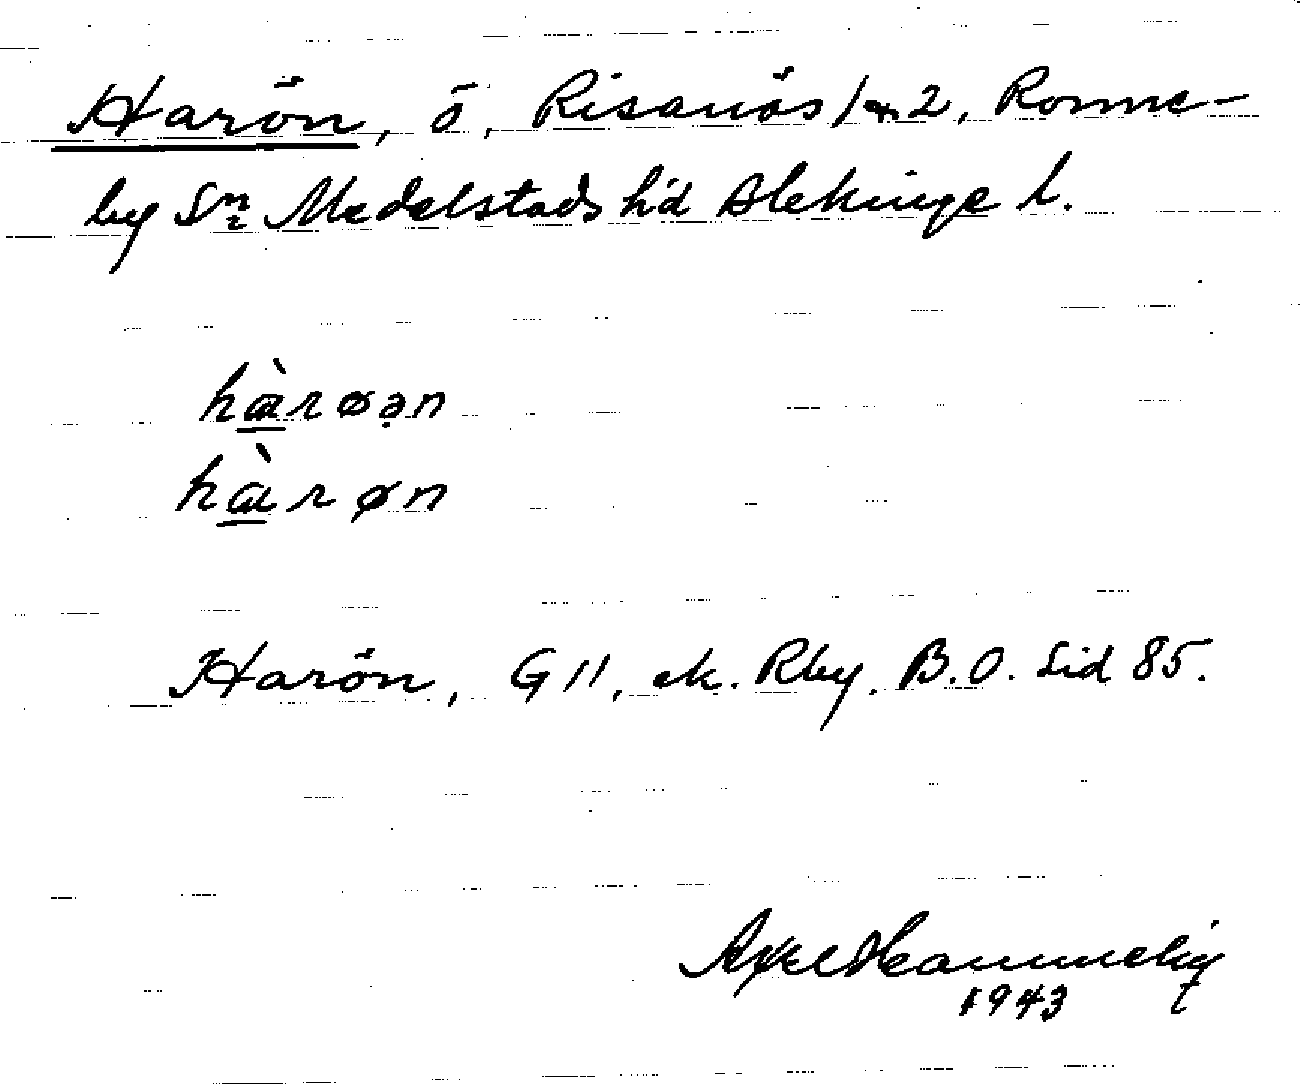 Harön, ö, Risanäs 1 & 2, Ronne-
by Sn Medelstads h'd Blekinge l.
hàrøən
hàrøn
Harön, G 11, ek. Rby. B.O. Sid 85.
Axel
1943